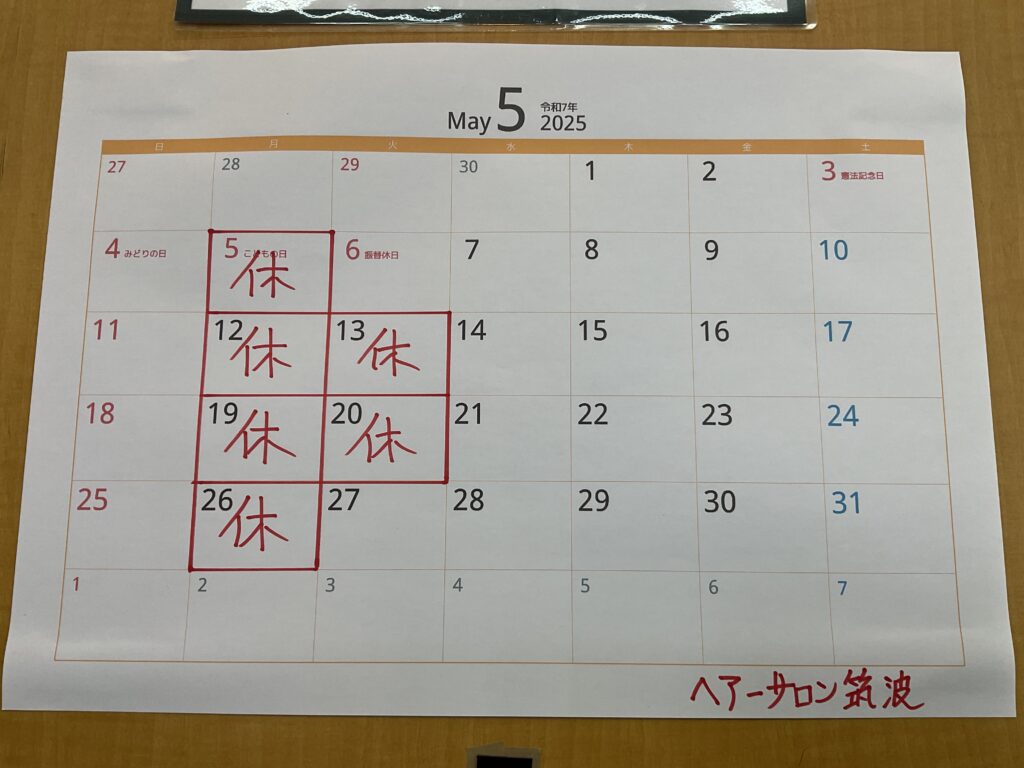 May 5 令和7年 2025
日 月 火 水 木 金 土
27 28 29 30 1 2 3 憲法記念日
4 みどりの日 5 こどもの日 休 6 振替休日 7 8 9 10
11 12 休 13 休 14 15 16 17
18 19 休 20 休 21 22 23 24
25 26 休 27 28 29 30 31
1 2 3 4 5 6 7
ヘアーサロン筑波